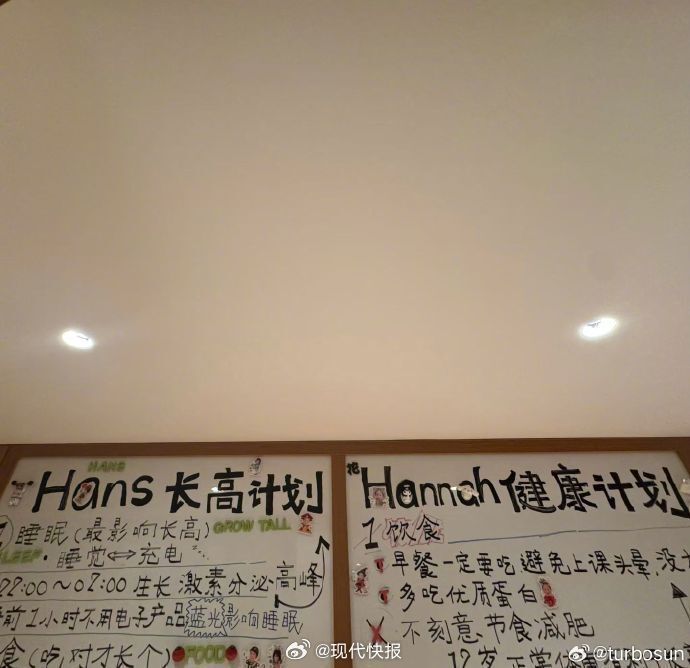 HANS
Hans 长高计划
睡眠(最影响长高)
GROW TALL
SLEEP
·睡觉⟷充电
22:00～02:00 生长激素分泌高峰
前1小时不用电子产品 蓝光影响睡眠
食(吃对才长个)
FOOD
花
Hannah 健康计划
1 饮食
早餐一定要吃 避免上课头晕,没
多吃优质蛋白
X 不刻意节食减肥
12岁正常
@现代快报
@turbosun